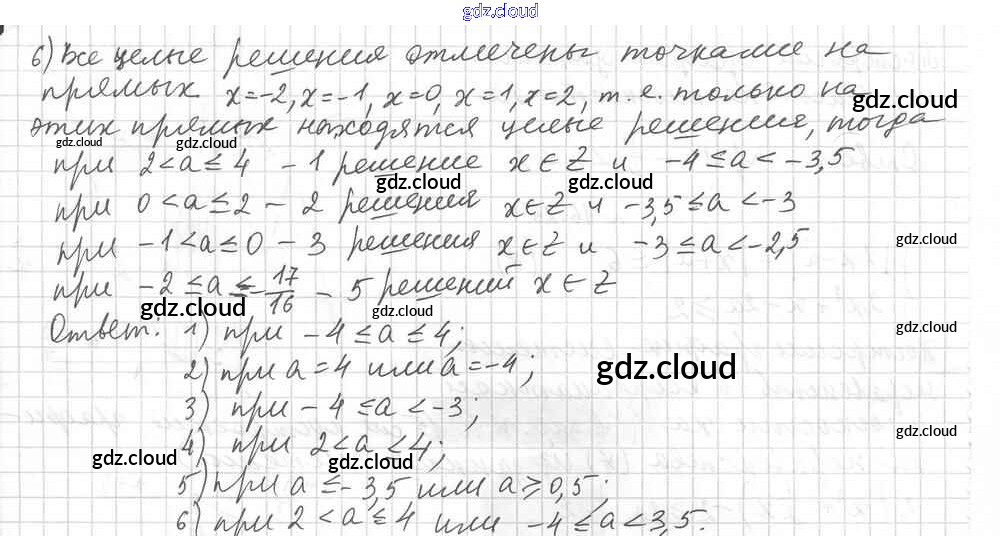 gdz.cloud
6) Все целые решения отмечены точками на
прямых x=-2, x=-1, x=0, x=1, x=2, т.е. только на
gdz.cloud
этих прямых находятся целые решения, тогда
gdz.cloud gdz.cloud gdz.cloud
при 2<a≤4 - 1 решение x∈Z и -4≤a<-3,5
gdz.cloud gdz.cloud
при 0<a≤2 - 2 решения x∈Z и -3,5≤a<-3
при -1<a≤0 - 3 решения x∈Z и -3≤a<-2,5
gdz.cloud
при -2≤a≤-17/16 - 5 решений x∈Z
gdz.cloud gdz.cloud
Ответ: 1) при -4≤a≤4;
gdz.cloud
2) при a=4 или a=-4;
gdz.cloud
3) при -4≤a<-3;
4) при 2<a<4;
gdz.cloud
gdz.cloud gdz.cloud
5) при a≤-3,5 или a≥0,5;
6) при 2<a≤4 или -4≤a<3,5.